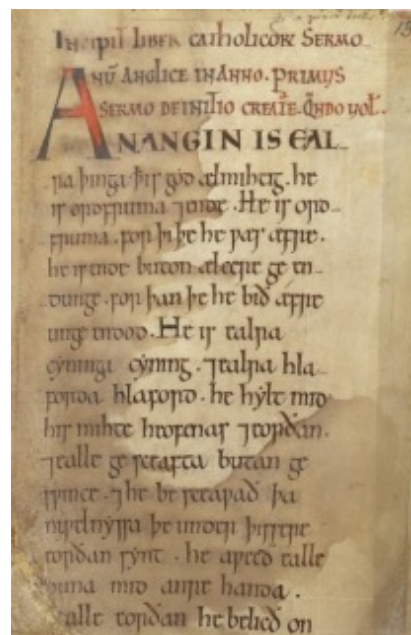 Incipit liber catholicorū sermo-
nū anglice in anno. primus
sermo de initio creatṛe. q̄ndo uol̄.
AN ANGIN IS EAL-
ra þinga ꝥ is god ælmihtig. he
is ordfruma ⁊ ende. He is ord-
fruma. for þi þe he ƿæs æfre.
he is ende buton ælcere geen-
dunge. for þan þe he bið æfre
unge endod. He is ealra
cyninga cyning. ⁊ ealra hla-
forda hlaford. he hylt mid
his mihte heofenas ⁊ eorðan.
⁊ ealle ge sceafta butan ge
sƿince. ⁊ he be sceaƿað þa
niƿelnyssa þe under þissere
eorðan synt. he ealle
duna mid anre handa.
⁊ ealle eorðan he belicð on